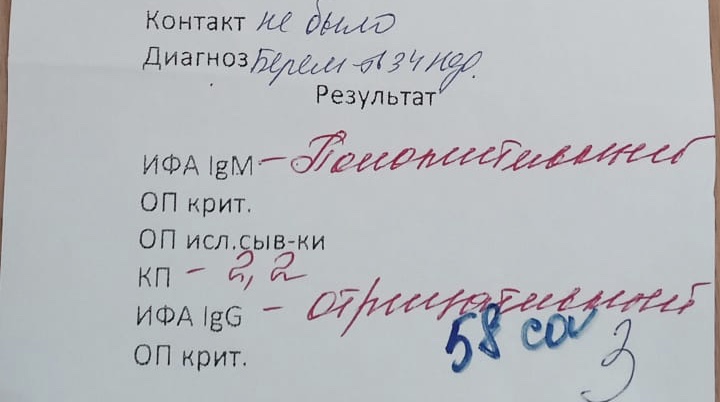 Контакт не было
Диагноз Берем-ть 34 нед.
Результат
ИФА IgM – Положительный
ОП крит.
ОП исл.сыв-ки
КП – 2,2
ИФА IgG – отрицательный
58
ОП крит.